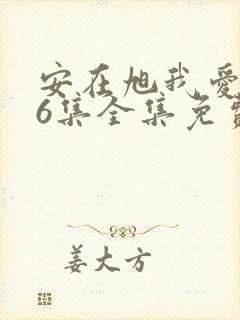 安在旭我爱
6集全集免费
姜大方